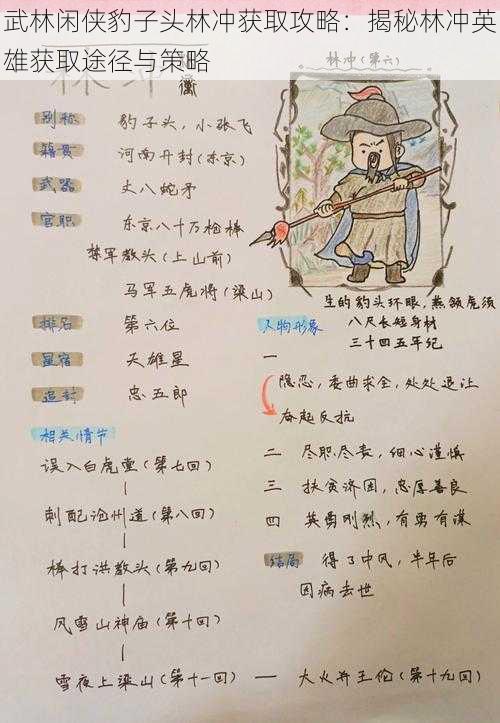 武林闲侠豹子头林冲获取攻略：揭秘林冲英
雄获取途径与策略
林冲（第六）
林冲
衝
别称 豹子头，小张飞
籍贯 河南开封（东京）
武器 丈八蛇矛
官职 东京八十万枪棒
禁军教头（上山前）
马军五虎将（梁山）
排名 第六位
星宿 天雄星
追封 忠五郎
生的豹头环眼，燕颔虎须
八尺长短身材
三十四五年纪
人物形象
一
隐忍，委曲求全，处处退让
奋起反抗
二 尽职尽责，细心谨慎
三 扶贫济困，忠厚善良
四 英勇刚烈，有勇有谋
结局 得了中风，半年后
因病去世
相关情节
误入白虎堂（第七回）
刺配沧州道（第八回）
棒打洪教头（第九回）
风雪山神庙（第十回）
雪夜上梁山（第十一回） — 大火并王伦（第十九回）